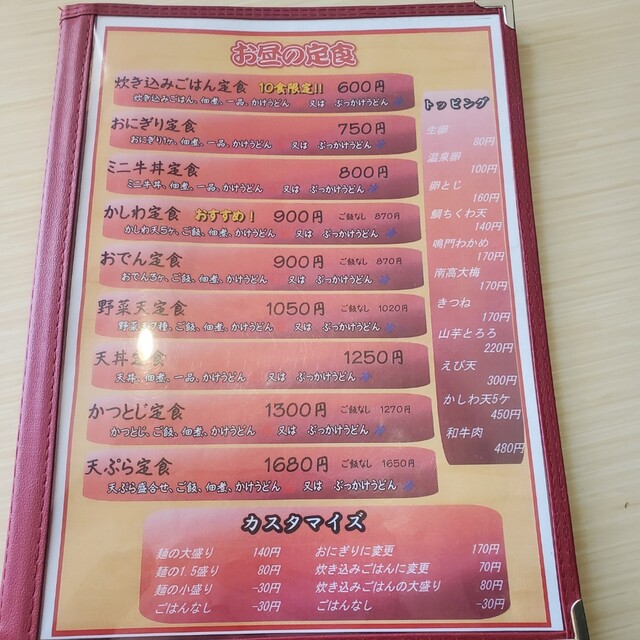 お昼の定食
炊き込みごはん定食 10食限定!! 600円
炊き込みごはん、佃煮、一品、かけうどん 又は ぶっかけうどん
おにぎり定食 750円
おにぎり1ヶ、佃煮、一品、かけうどん 又は ぶっかけうどん
ミニ牛丼定食 800円
ミニ牛丼、佃煮、一品、かけうどん 又は ぶっかけうどん
かしわ定食 おすすめ! 900円 ご飯なし 870円
かしわ天5ヶ、ご飯、佃煮、かけうどん 又は ぶっかけうどん
おでん定食 900円 ご飯なし 870円
おでん3ヶ、ご飯、佃煮、かけうどん 又は ぶっかけうどん
野菜天定食 1050円 ご飯なし 1020円
野菜天7種、ご飯、佃煮、かけうどん 又は ぶっかけうどん
天丼定食 1250円
天丼、佃煮、一品、かけうどん 又は ぶっかけうどん
かつとじ定食 1300円 ご飯なし 1270円
かつとじ、ご飯、佃煮、かけうどん 又は ぶっかけうどん
天ぷら定食 1680円 ご飯なし 1650円
天ぷら盛合せ、ご飯、佃煮、かけうどん 又は ぶっかけうどん
トッピング
生卵
80円
温泉卵
100円
卵とじ
160円
鯛ちくわ天
140円
鳴門わかめ
170円
南高大梅
170円
きつね
170円
山芋とろろ
220円
えび天
300円
かしわ天5ケ
450円
和牛肉
480円
カスタマイズ
麺の大盛り 140円 おにぎりに変更 170円
麺の1.5盛り 80円 炊き込みごはんに変更 70円
麺の小盛り -30円 炊き込みごはんの大盛り 80円
ごはんなし -30円 ごはんなし -30円